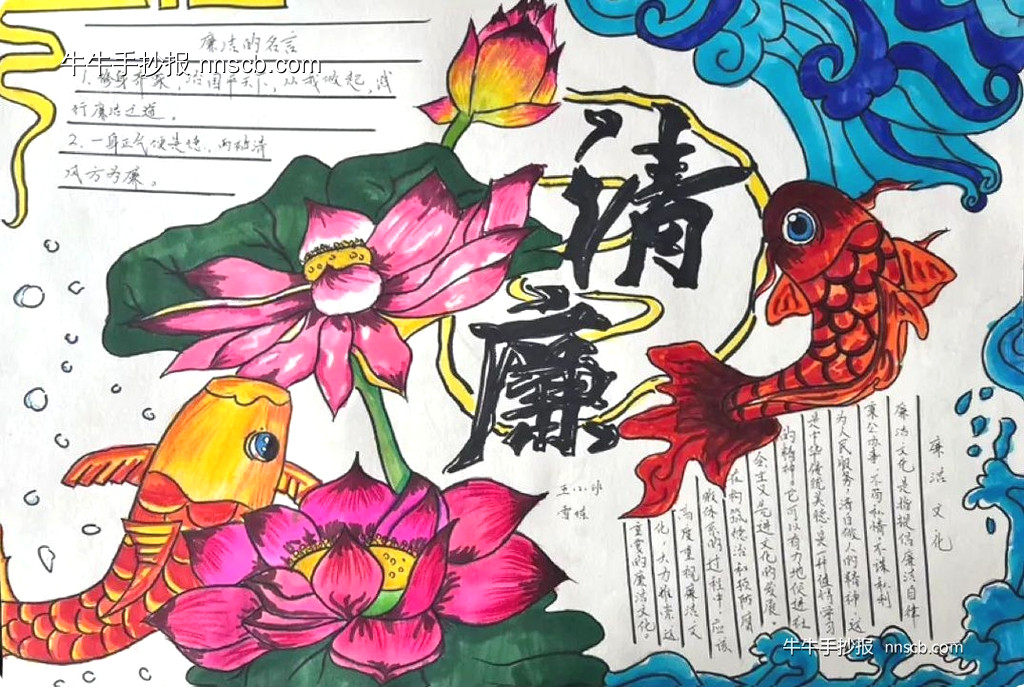 廉洁的名言
牛牛手抄报 nnscb.com
1. 修身齐家,治国平天下,从我做起,践
行廉洁之道。
2. 一身正气便是德,两袖清
风方为廉。
清
廉
王小
廉洁文化
廉洁文化是指提倡廉洁自律
秉公办事,不徇私情,不谋私利
为人民服务,清白做人的精神,这
是中华传统美德,是一种值得学习
的精神。它可以有力地促进社
会主义先进文化的发展。
在构筑惩治和预防腐
败体系的过程中,应该
高度重视廉洁文
化,大力推崇这
重要的廉洁文化。
牛牛手抄报 nnscb.com